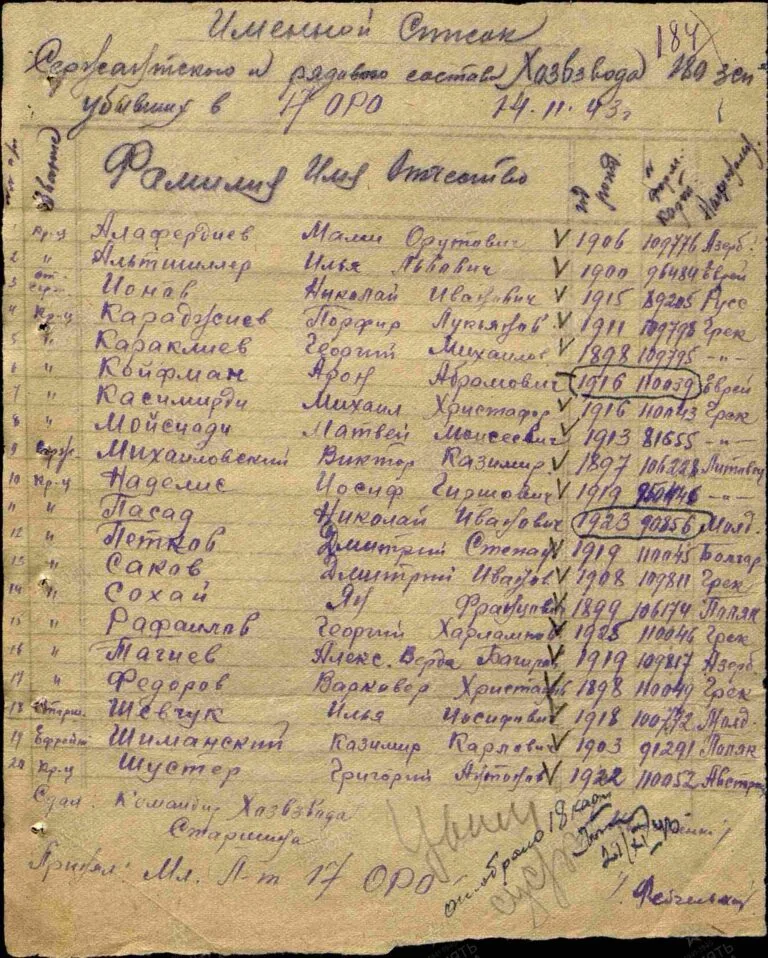 Именной Список
184
Сержантского и рядового состава Хозвзвода 180 зсп
убывших в 17 ОРО 14.11.43г
Звание Фамилия Имя Отчество год рожд.
1 кр-ц Алафердиев Мами Орутович V 1906 109776 Азерб.
2 " Альтшиллер Илья Львович V 1900 96484 Еврей
3 ст. серж. Ионов Николай Иванович V 1915 89205 Русс
4 кр-ц Карабуснев Порфир Лукьянов V 1911 109798 Грек
5 " Караклиев Георгий Михайлов V 1898 109795 -"-
6 " Койфман Арон Абрамович 1916 110039 Еврей
7 " Касимирди Михаил Христафор V 1916 110043 Грек
8 " Мойсиади Матвей Моисеевич V 1913 81655 -"-
9 Серж. Михайловский Виктор Казимир V 1897 106228 Литовец
10 кр-ц Наделис Иосиф Гиршович V 1919 -"-
11 " Пасад Николай Иванович 1923 90856 Молд.
12 " Петков Дмитрий Степан V 1919 110045 Болгар
13 " Саков Дмитрий Иванов V 1908 109811 Грек
14 " Сохай Ян Францович 1899 106174 Поляк
15 " Рафаилов Георгий Харлампов V 1925 110046 Грек
16 " Тагиев Алекс. Верди Багиров V 1919 109817 Азерб.
17 " Федоров Варковер Христаф 1898 110049 Грек
18 Старш. Шевчук Илья Иосифович V 1918 100772 Молд.
19 Ефрейт Шиманский Казимир Карлович V 1903 91291 Поляк
20 кр-ц Шустер Григорий Антонов V 1922 110052 Австриец
Сдал: Командир Хозвзвода
Старшина
отобрано 18 карт
Принял: Мл. Л-т 17 ОРО